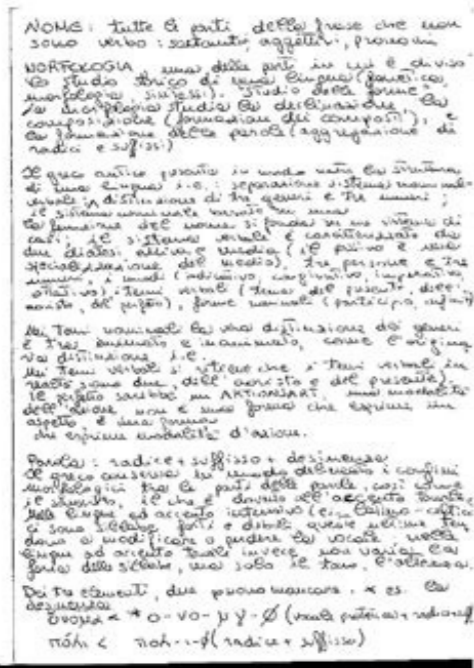 NOME: tutte le parti della frase che non
sono verbo: sostantivi, aggettivi, pronomi
MORFOLOGIA una delle parti in cui è diviso
lo studio storico di una lingua (fonetica,
morfologia, sintassi). studio delle forme.
la morfologia studia la declinazione, la
composizione (formazione dei composti), e
la formazione delle parole (aggregazione di
radici e suffissi)
Il greco antico presenta in modo la struttura
di una lingua i.e.: separazione sistema nominale
verbale; distinzione di tre generi e tre numeri;
il sistema nominale basato su una
la funzione del nome si fonda su un sistema di
casi; il sistema verbale è caratterizzato da
due diatesi attiva e media (il passivo è una
specializzazione del medio), tre persone e tre
numeri, i modi (indicativo, congiuntivo, imperativo
ottativo) i temi verbali (tema del presente, dell'
aoristo, del perfetto), forme nominali (participio, infinito
Nei temi nominali la vera distinzione dei generi
è tra animato e inanimato, come l'origine
distinzione i.e.
Nei temi verbali si ritiene che i temi verbali in
realtà sono due, dell'aoristo e del presente).
il perfetto sarebbe un AKTIONSART, una modalità
dell'azione, non è una forma che esprime un
aspetto è una forma
che esprime modalità d'azione.
Parola: radice + suffisso + desinenza
Il greco conserva in modo i confini
morfologici tra le parti delle parole, così come
il sanscrito, il che è dovuto all'accento tonale
Nelle lingue ad accento intensivo
ci sono sillabe forti e deboli queste ultime ten
dono a modificare o perdere la vocale. nelle
lingue ad accento tonale invece non varia la
forza della sillaba, ma solo il tono, l'altezza.
Dei tre elementi, due possono mancare. * es. la
desinenza
ὄνομα < * o-vo-μ γ-∅ (vocale protetica + radice+∅
πόλι < πολ-ι-∅ (radice + suffisso)